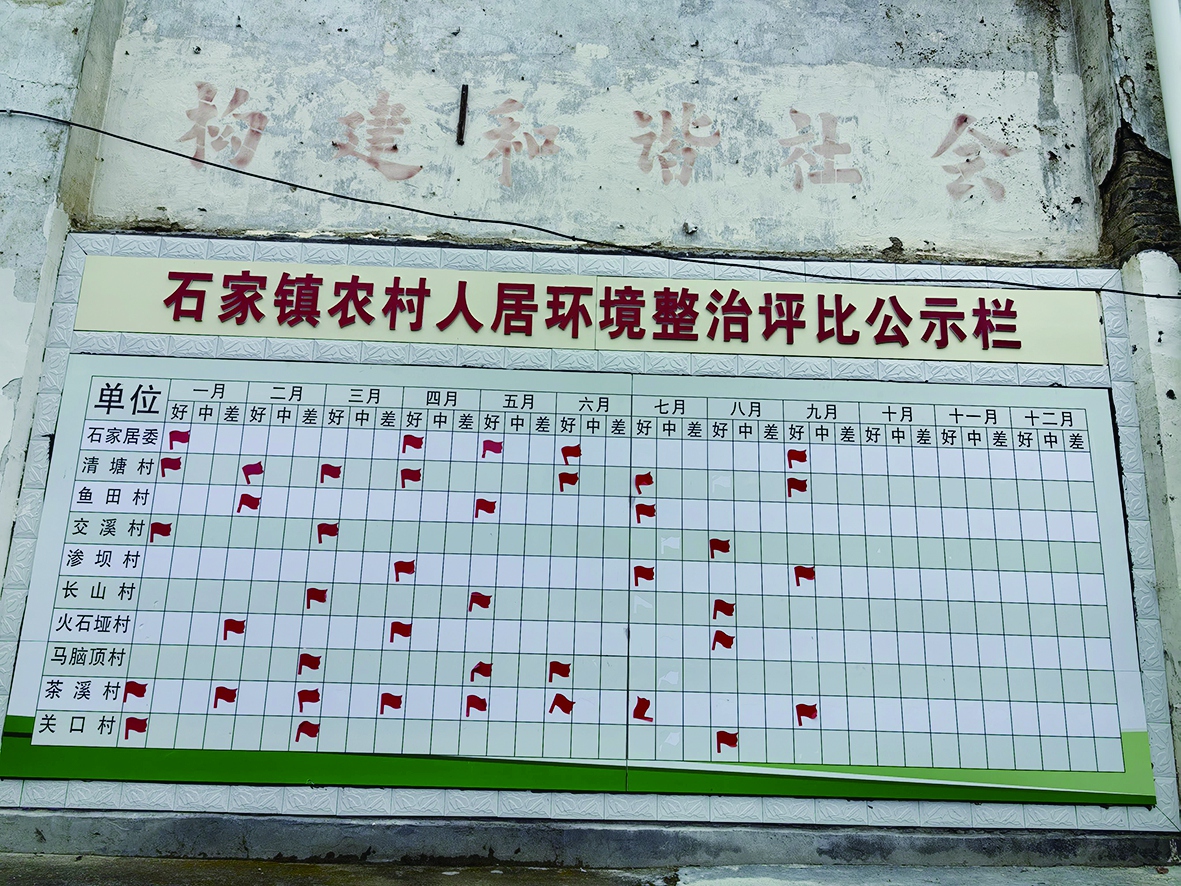 构建和谐社会
石家镇农村人居环境整治评比公示栏
单位 一月 二月 三月 四月 五月 六月 七月 八月 九月 十月 十一月 十二月
好 中 差 好 中 差 好 中 差 好 中 差 好 中 差 好 中 差 好 中 差 好 中 差 好 中 差 好 中 差 好 中 差 好 中 差
石家居委
清塘村
鱼田村
交溪村
渗坝村
长山村
火石垭村
马脑顶村
茶溪村
关口村